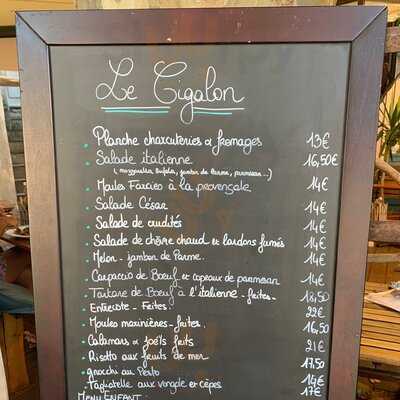 Le Cigalon
Planche charcuteries & fromages 13€
Salade italienne 16,50€
(mozzarella bufala, jambon de Parme, parmesan...)
Moules Farcies à la provençale 14€
Salade César 14€
Salade de crudités 14€
Salade de chèvre chaud et lardons fumés 14€
Melon - jambon de Parme. 14€
Carpaccio de Boeuf et copeaux de parmesan 14€
Tartare de Boeuf à l'italienne - frites - 17,50
Entrecôte - Frites. 22€
Moules marinières - frites. 16,50
Calamars & frites 21€
Risotto aux fruits de mer 17,50
gnocchi au Pesto 14€
Tagliatelle aux vongole et cèpes 17€
MENU ENFANT: